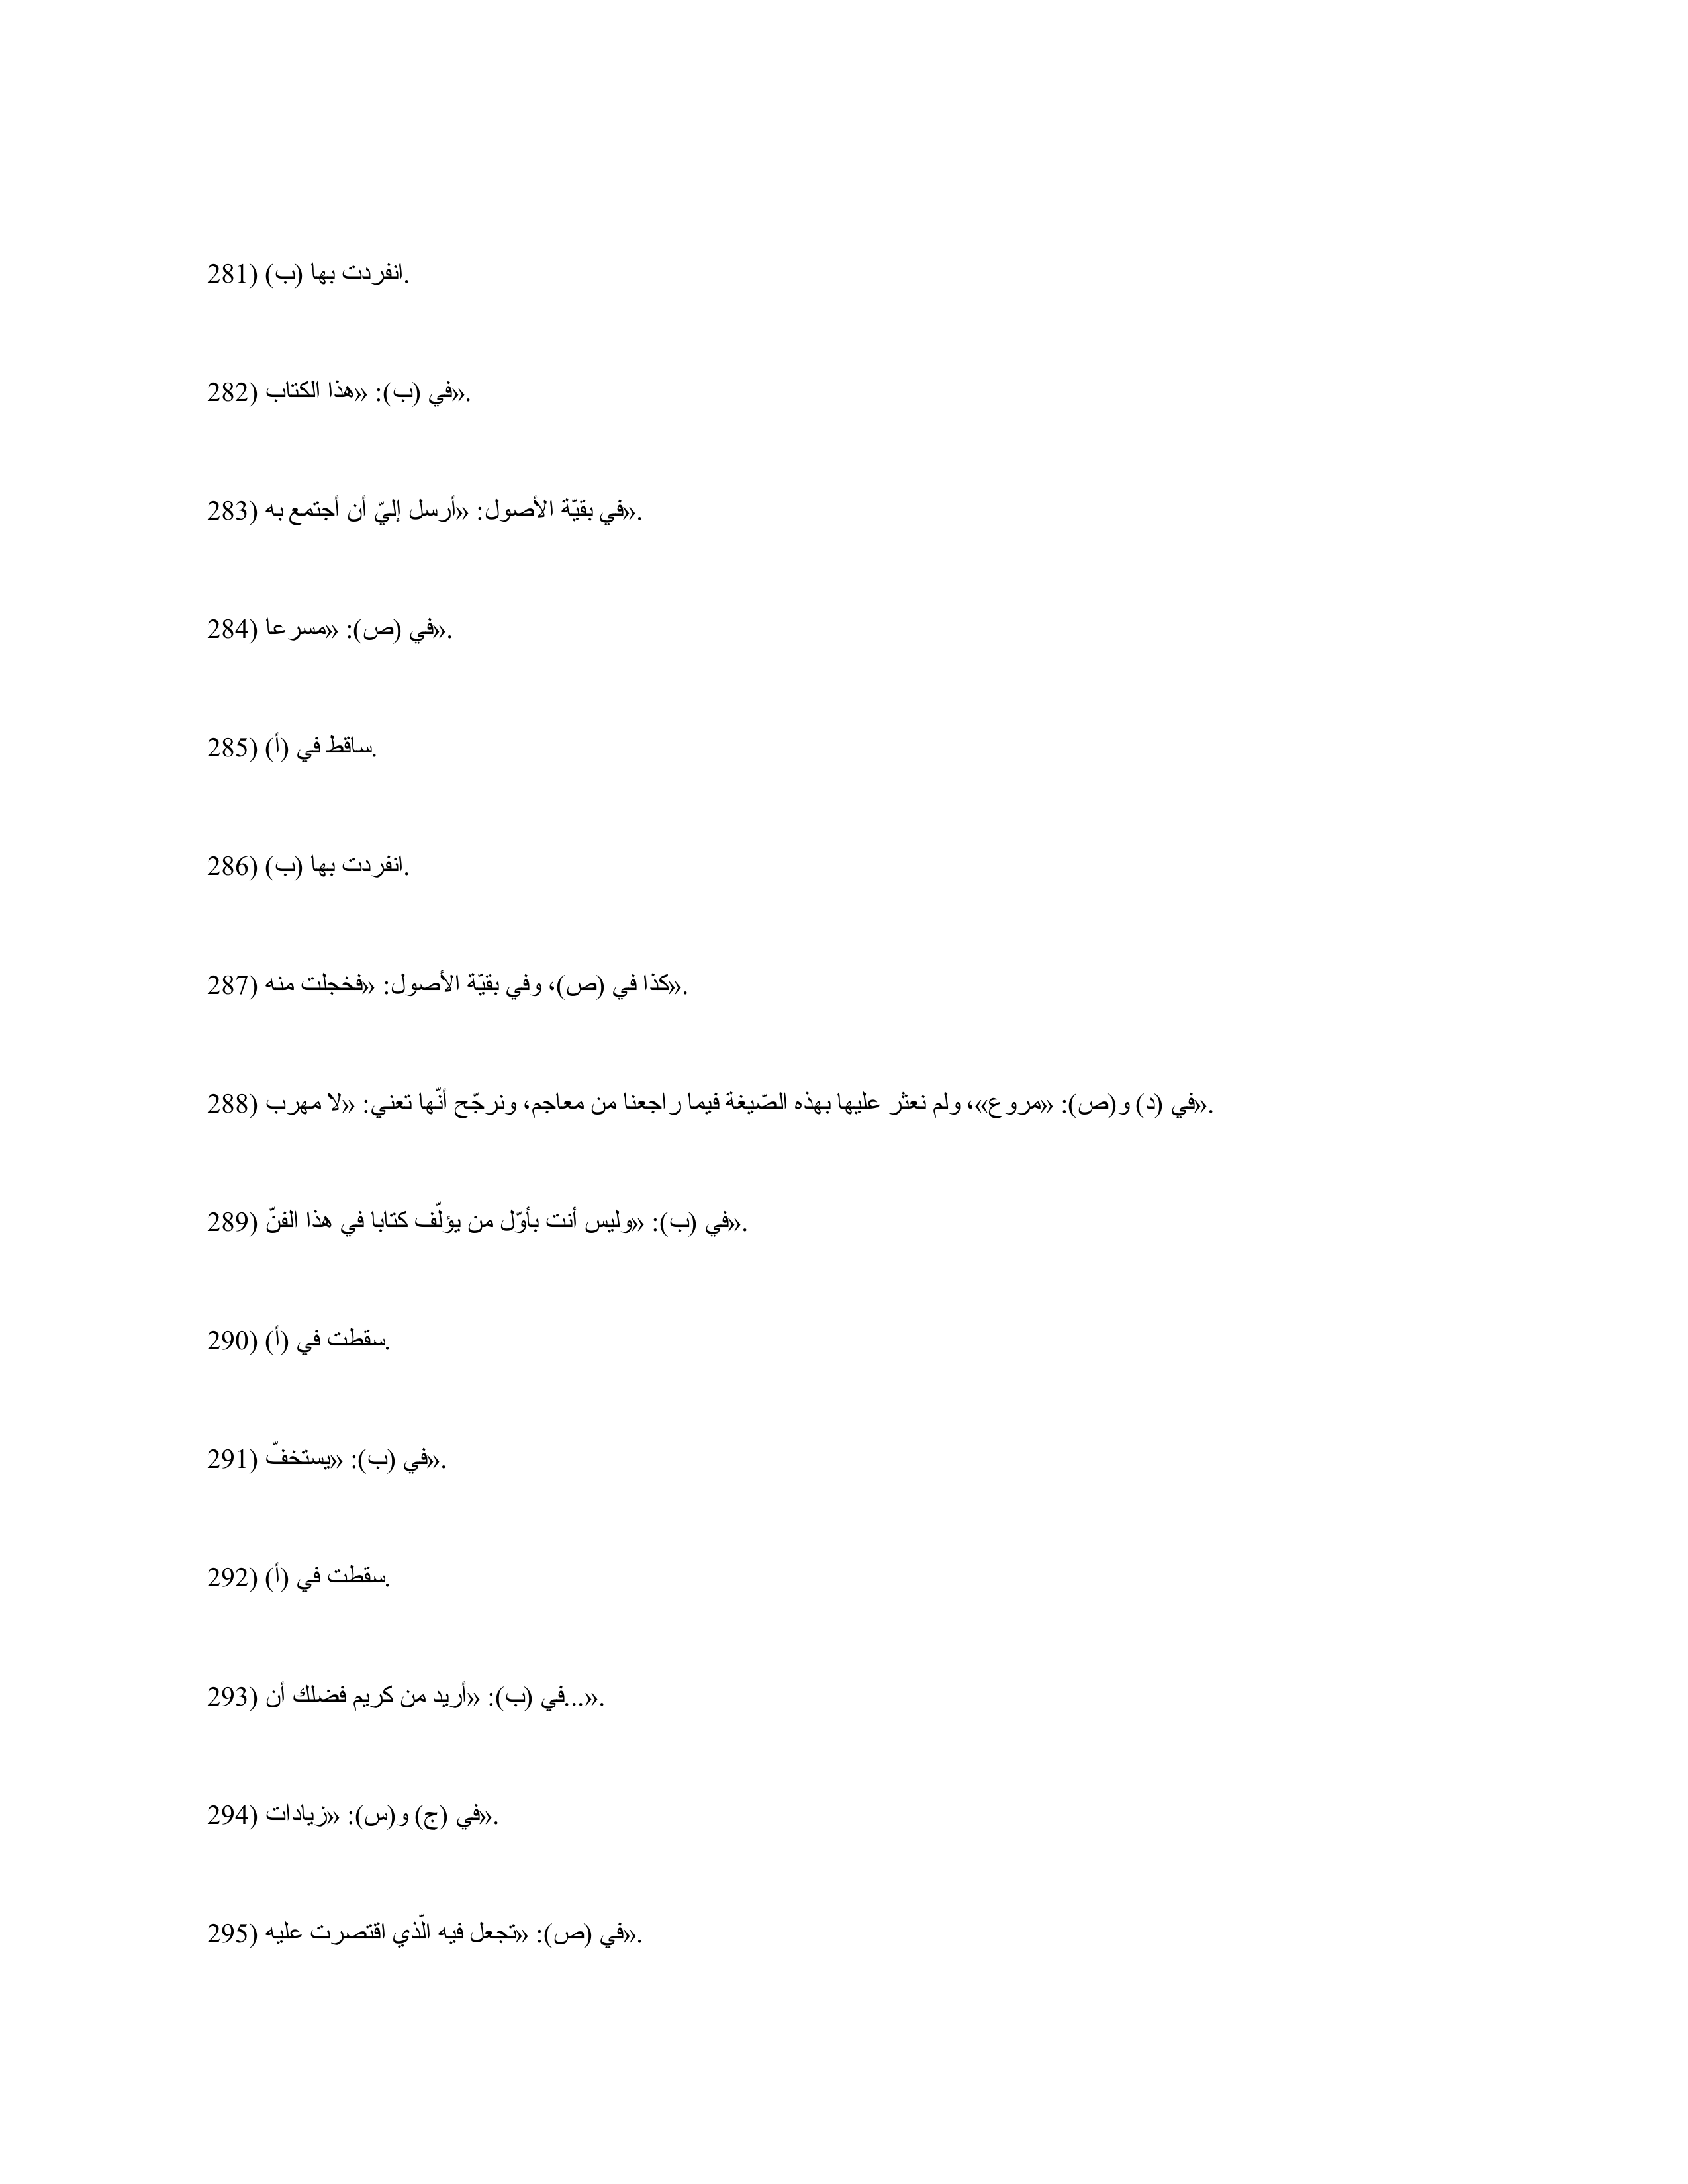 281) انفردت بها (ب).
282) في (ب): «هذا الكتاب».
283) في بقيّة الأصول: «أرسل إليّ أن أجتمع به».
284) في (ص): «مسرعا».
285) ساقط في (أ).
286) انفردت بها (ب).
287) كذا في (ص)، وفي بقيّة الأصول: «فخجلت منه».
288) في (د) و(ص): «مروع»، ولم نعثر عليها بهذه الصّيغة فيما راجعنا من معاجم، ونرجّح أنّها تعني: «لا مهرب».
289) في (ب): «وليس أنت بأوّل من يؤلّف كتابا في هذا الفنّ».
290) سقطت في (أ).
291) في (ب): «يستخفّ».
292) سقطت في (أ).
293) في (ب): «أريد من كريم فضلك أن...».
294) في (ج) و(س): «زيادات».
295) في (ص): «تجعل فيه الّذي اقتصرت عليه».